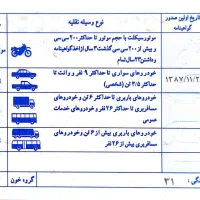 تاریخ اولین صدور
گواهینامه
نوع وسیله نقلیه
موتورسیکلت با حجم موتور تا حداکثر ۲۰۰ سی سی
و بیش از ۲۰۰ سی سی گذشت ۳ سال از اخذ گواهینامه
و داشتن ۲۳ سال تمام
خودروهای سواری تا حداکثر ۹ نفر و وانت تا
حداکثر ۳/۵ تن (شخصی)
۱۳۸۷/۱۱/۲
خودروهای باربری تا حداکثر ۶ تن و خودروهای
مسافربری تا حداکثر ۲۶ نفر و خودروهای خدمات
عمومی
خودروهای باربری بیش از ۶ تن و خودروهای
مسافربری بیش از ۲۶ نفر
گروه خون
۳۱